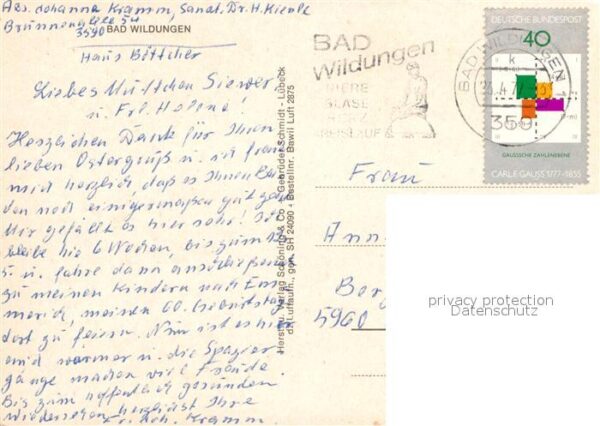 Abs. Johanna Kramm, Sanat. Dr. H. Kienle
Brunnenallee 54
3590 BAD WILDUNGEN
Haus Böttcher
Liebes Muttchen Siewer
u. Frl. Helene!
Herzlichen Dank für Ihren
lieben Ostergruß u. ich freue
mich herzlich, daß es Ihnen bei
den noch einigermaßen gut geht
Mir gefällt es hier sehr! Ich
bleibe hie 6 Wochen, bis zum
5. u. fahre dann anschließend
zu meinen Kindern nach Em
merich, meinen 60. Geburtstag
dort zu feiern. Nun ist es hier
wärmer u. die Spazier
gänge machen viel Freude.
Bis zum hoffentlich gesunden
Wiedersehen herzlichst Ihre
Fr. Joh. Kramm
Herstlg. u. Verlag Schöning & Co + Gebrüder Schmidt - Lübeck
dt. Luftaufn., gen. SH 24090 - Bestellnr. Bawil Luft 2875
BAD
Wildungen
NIERE
BLASE
HERZ
KREISLAUF
BAD WILDUNGEN 1
k
359
DEUTSCHE BUNDESPOST
40
GAUSSSCHE ZAHLENEBENE
CARL F. GAUSS 1777-1855
Frau
Ann
Ber
5960
privacy protection
Datenschutz